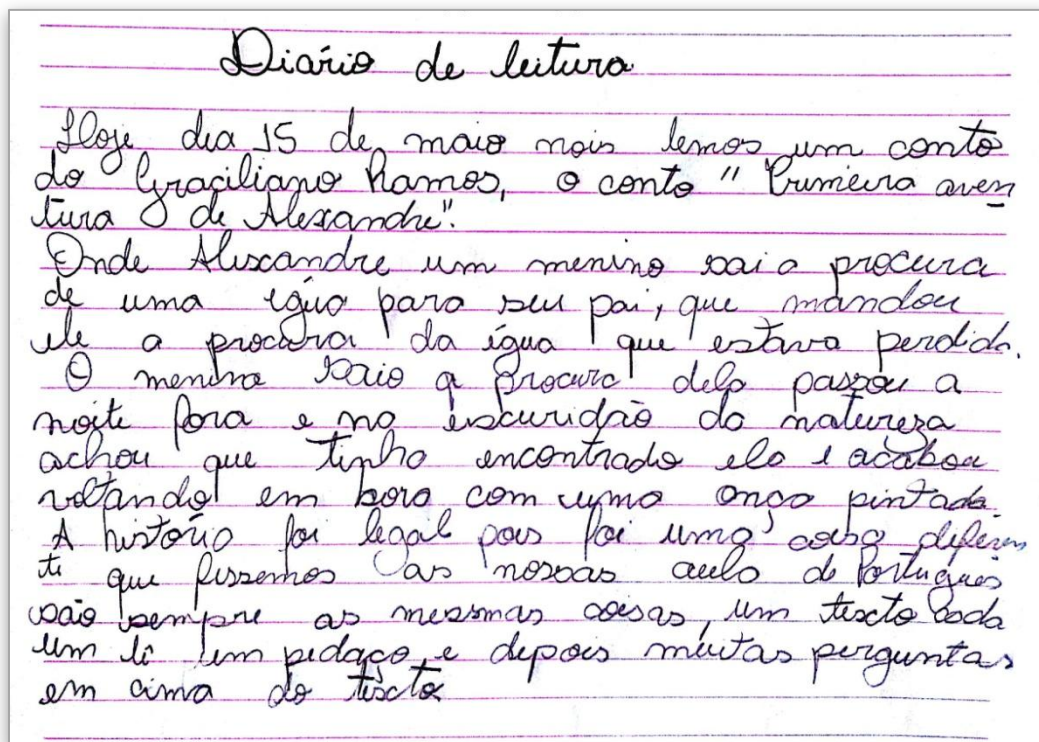 Diário de leitura
Hoje dia 15 de maio nois lemos um conto
do Graciliano Ramos, o conto "Primeira aven
tura de Alexandre".
Onde Alexandre um menino sai a procura
de uma égua para seu pai, que mandou
ele a procura da égua que estava perdida.
O menino saio a procura dela passou a
noite fora e na escuridão da natureza
achou que tinha encontrado ela e acabou
voltando em bora com uma onça pintada.
A história foi legal pois foi uma coisa diferen
te que fissemos as nossas aula de Português
são sempre as mesmas coisas, um texto cada
um lê um pedaço e depois muitas perguntas
em cima do texto